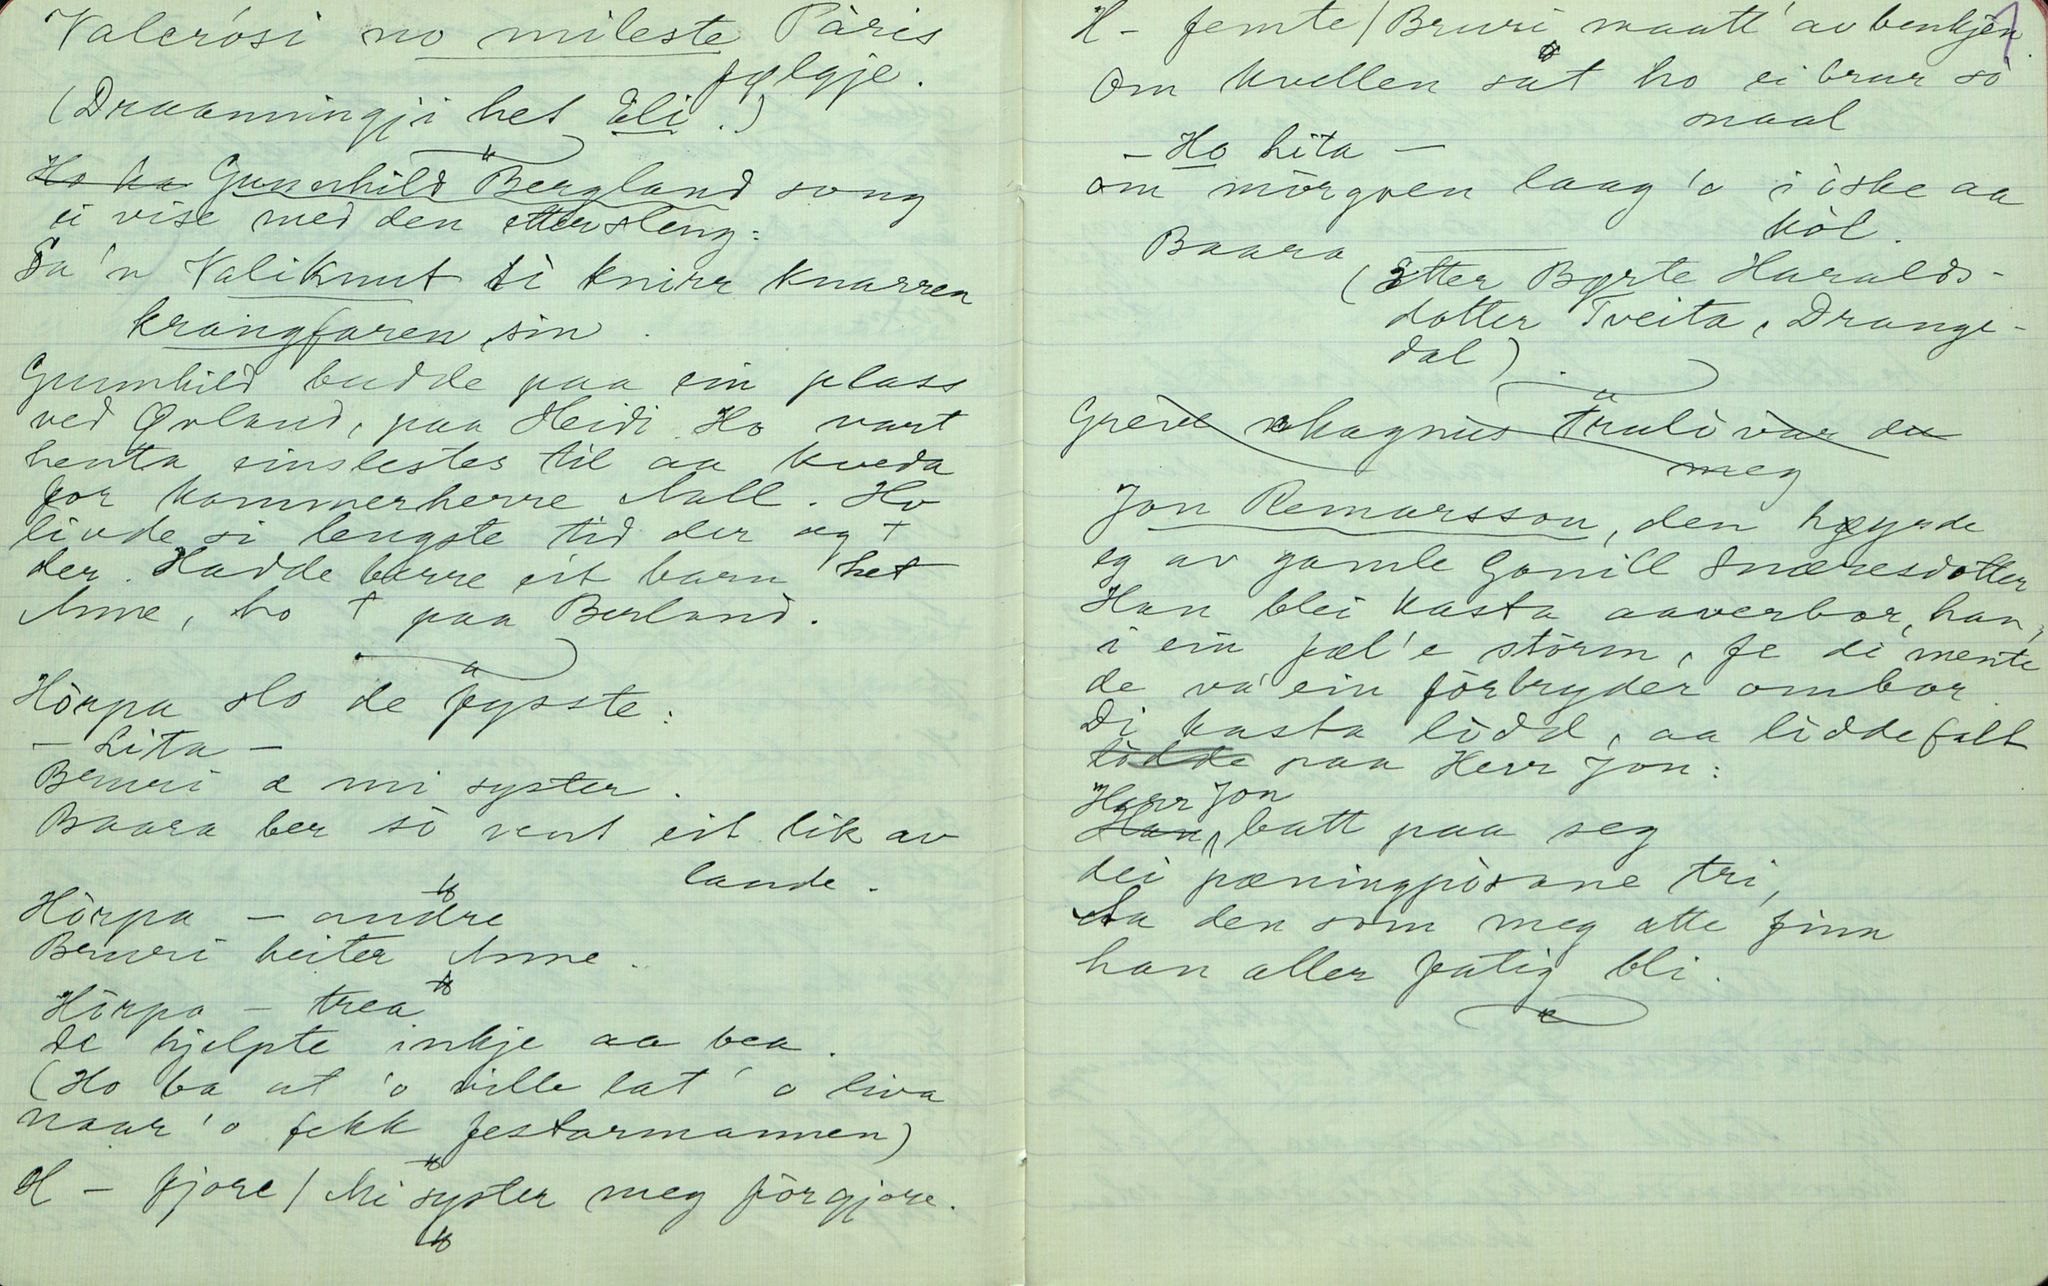 Valerósi no mileste Páris
følgje.
(Draanningji het Eli.)
Ho ha Gunnhild Bergland song
ei vise med den ettersleng:
Sa'n Valiknut ti knirr knarren
krangfaren sin.
Gunnhild budde paa ein plass
ved Ørland, paa Heidi. Ho vart
henta einslestes til aa kveda
for kammerherre Aall. Ho
livde si lengste tid der og †
der. Hadde berre eit barn het
Anne, ho † paa Berland.
Hòrpa slo de fysste:
– Lita –
Bruri æ mi syster.
Baara ber so vent eit lik av
lande.
Hòrpa – andre
Bruri heiter Anne.
Hòrpa – trea
De hjelpte inkje aa bea.
(Ho ba at 'o ville lat' o liva
naar 'o fekk festarmannen)
H – fjore / Mi syster meg fòrgjore.
7
H – femte / Bruri maatt' av benkjen.
Om kvellen sat ho ei brur so
maal
– Ho lita –
om mòrgoen laag 'o i òske aa
kòl.
Baara
(Etter Børte Haralds-
dotter Tveita, Drange-
dal).
Greive Magnus truli var du
meg
Jon Remarsson, den høyrde
eg av gamle Gonill Snæresdotter
Han blei kasta aaverbor, han,
i ein fæl'e stòrm, fe di mente
de va' ein fòrbryder ombor
Di kasta lòdd, aa lòdde falt
lòdde paa Herr Jon:
Herr Jon
Han, batt paa seg
dei pæningpòsane tri,
Aa den som meg atte finn
han aller fatig bli.